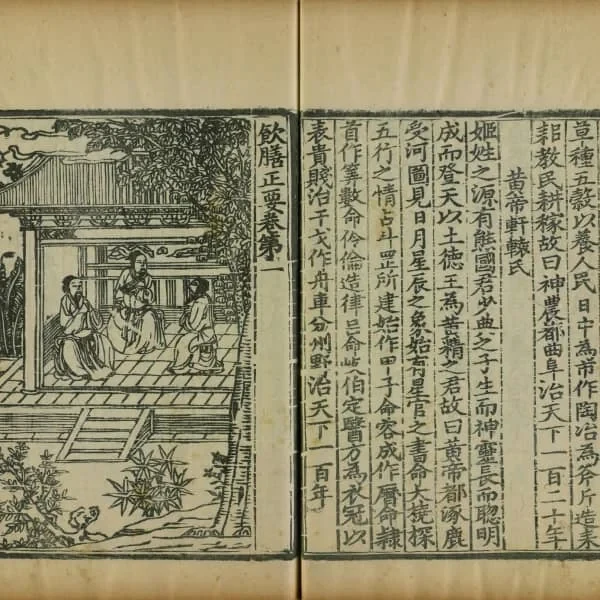 草種五穀以養人民日中為市作陶冶為斧斤造耒
耜教民耕稼故曰神農都曲阜治天下一百二十年
黄帝軒轅氏
姬姓之源有熊國君少典之子生而神靈長而聰明
成而登天以土徳王為黄精之君故曰黄帝都涿鹿
受河圖見日月星辰之象始有星官之書命大撓探
五行之情占斗罡所建始作甲子命容成作曆命隸
首作筭數命伶倫造律吕命岐伯定醫方為衣冠以
表貴賤治干戈作舟車分州野治天下一百年
飲膳正要卷第一